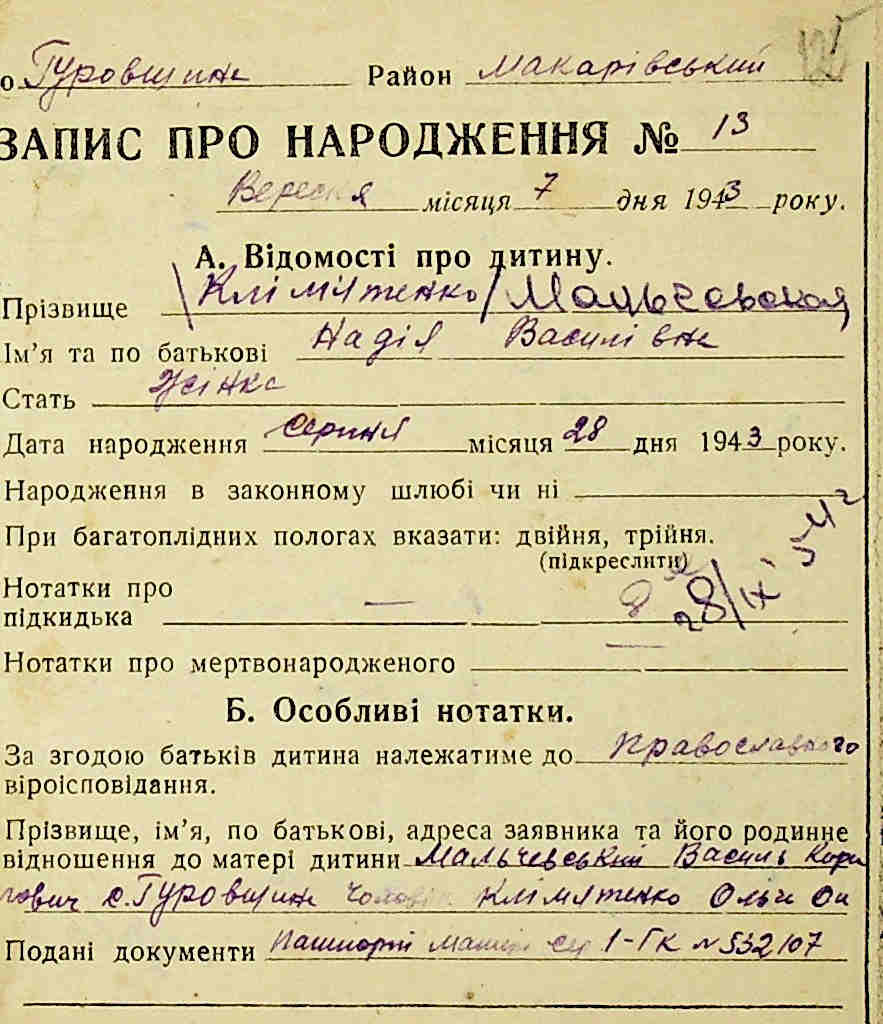 о Гуровщина Район Макарівський
ЗАПИС ПРО НАРОДЖЕННЯ № 13
Вересня місяця 7 дня 1943 року.
А. Відомості про дитину.
Прізвище Клімятенко / Мальчевская
Ім'я та по батькові Надія Василівна
Стать Жінка
Дата народження серпня місяця 28 дня 1943 року.
Народження в законному шлюбі чи ні
При багатоплідних пологах вказати: двійня, трійня.
(підкреслити)
28/IX 54 г
Нотатки про
підкидька —
Нотатки про мертвонародженого —
Б. Особливі нотатки.
За згодою батьків дитина належатиме до православного
віроісповідання.
Прізвище, ім'я, по батькові, адреса заявника та його родинне
відношення до матері дитини Мальчевський Василь
с. Гуровщина Чоловік Клімятенко Ольги
Подані документи Пашпорт 1-ГК № 532107